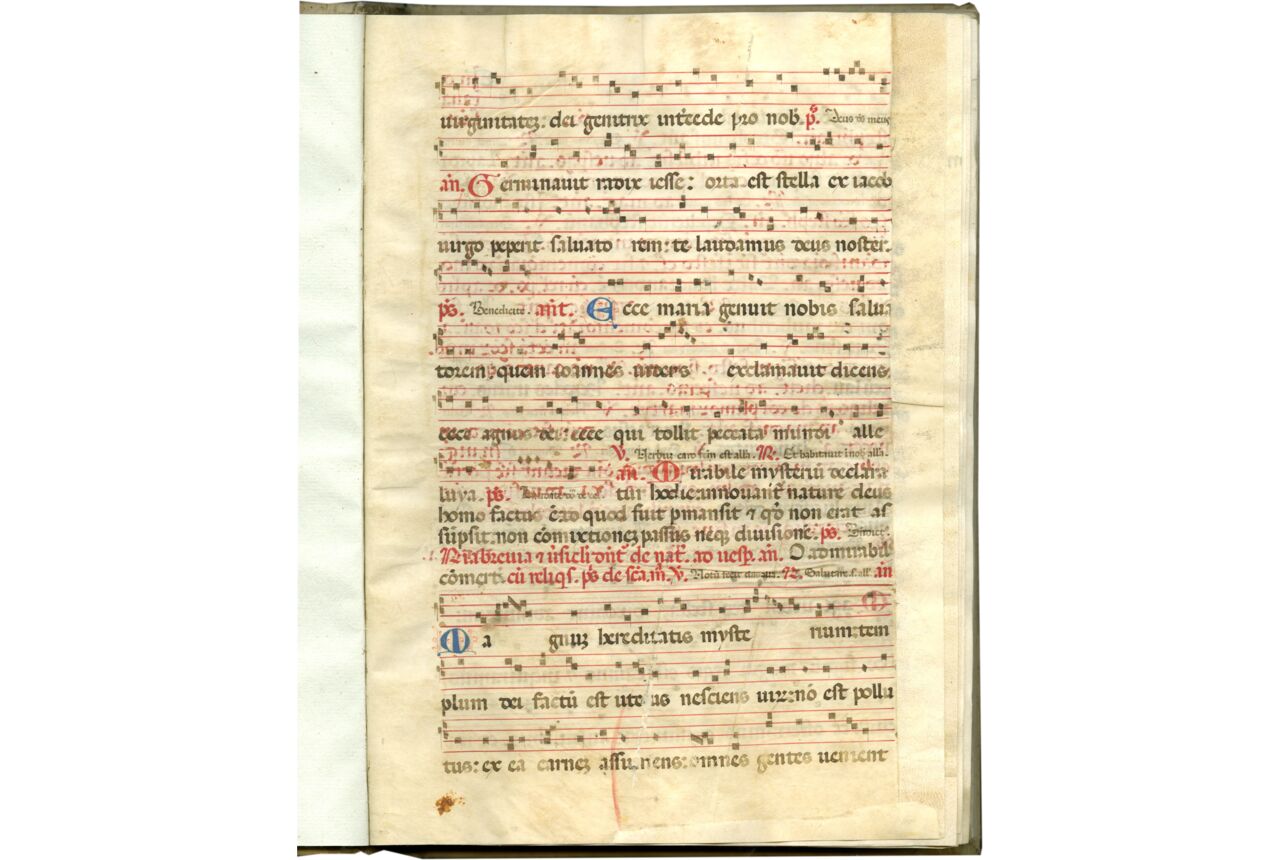 uirginitatez: dei genitrix intercede pro nob. ps. Deus ds meus
an. Germinauit radix iesse: orta est stella ex iacob
uirgo peperit saluato rem: te laudamus deus noster.
ps. Benedicite. ant. Ecce maria genuit nobis salua
torem: quem ioannes uidens exclamauit dicens
ecce agnus dei: ecce qui tollit peccata mundi alle
V. Verbuz caro fctm est alla. R. Et habitauit i nob alla.
an. Mirabile mysteriū declara
luya. ps. tur hodie: innouant nature deus
homo factus ē: id quod fuit pmansit & qđ non erat as
sūpsit. non comixtionez passus neqz diuisionē. ps.
de nat. ad uesp. an. O admirabile
comerciū cū reliqs. ps de sca. m. V. Notū fecit dns alla. R. Salutare s. all. an
Ma gnuz hereditatis myste rium: tem
plum dei factū est uterus nesciens uirz: nō est pollu
tus: ex ea carnez assumens: omnes gentes uenient